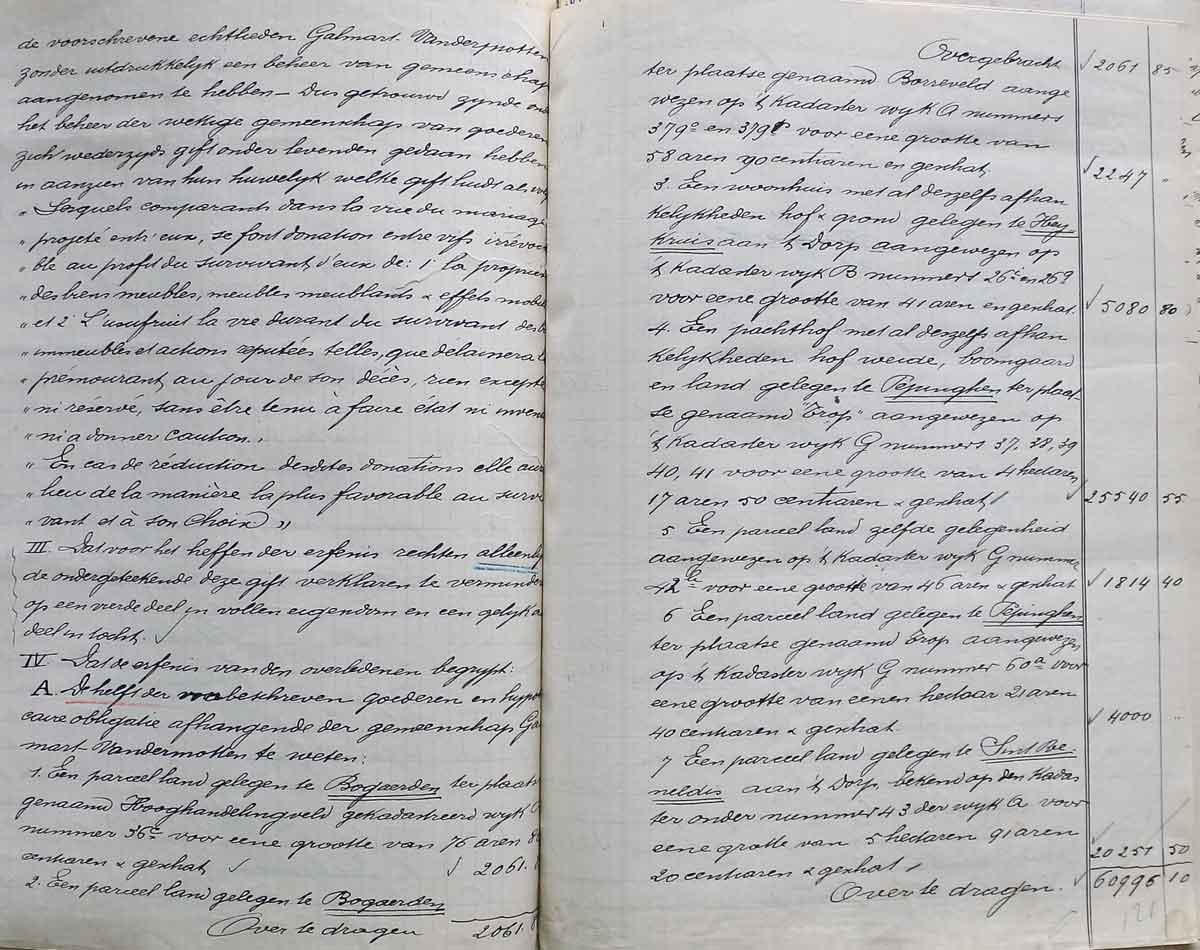 de voorschrevene echtlieden Galmart-Vandermotten
zonder uitdrukkelyk een beheer van gemeenschap
aangenomen te hebben — Dus getrouwd zynde onder
het beheer der wettige gemeenschap van goederen
zich wederzyds gift onder levenden gedaan hebben
in aanzien van hun huwelyk welke gift luidt als volgt
" Lesquels comparants dans la vue du mariage
" projeté entr'eux, se font donation entre vifs irrévoca
" ble au profit du survivant d'eux de: 1° la propriété
" des biens meubles, meubles meublants & effets mobi
" et 2° L'usufruit la vie durant du survivant des
" immeubles et actions réputées telles, que délaissera le
" prémourant au jour de son décès, rien excepté
" ni réservé, sans être tenu à faire état ni inven
" ni à donner caution.
" En cas de réduction desdites donations elle aura
" lieu de la manière la plus favorable au survi
" vant et à son choix "
III. Dat voor het heffen der erfenis rechten alleenlyk
de ondergeteekende deze gift verklaren te verminderen
op een vierde deel in vollen eigendom en een gelyk
deel in tocht.
IV Dat de erfenis van den overledenen begrypt:
A. De helft der voorbeschreven goederen en hypo
caire obligatie afhangende der gemeenschap Gal
mart Vandermotten te weten:
1. Een parceel land gelegen te Bogaerden ter plaatse
genaamd Hooghandelingveld gekadastreerd wyk A
nummer 36c voor eene grootte van 76 aren 8
centiaren & geschat 2061.
2. Een parceel land gelegen te Bogaerden
Over te dragen 2061.
Overgebracht 2061 85
ter plaatse genaamd Borreveld aange
wezen op 't Kadaster wyk A nummers
379a en 379b voor eene grootte van
58 aren 90 centiaren en geschat 2247 "
3. Een woonhuis met al deszelfs afhan
kelykheden hof & grond gelegen te Hey-
kruis aan 't Dorp aangewezen op
't Kadaster wyk B nummers 26c en 26d
voor eene grootte van 41 aren en geschat 5080 80
4. Een pachthof met al deszelfs afhan
kelykheden hof weide, boomgaard
en land gelegen te Pepinghen ter plaat
se genaamd "Trop" aangewezen op
't Kadaster wyk G nummers 37, 38, 39
40, 41 voor eene grootte van 4 hectaren
17 aren 50 centiaren & geschat 25540 55
5 Een parceel land zelfde gelegenheid
aangewezen op 't Kadaster wyk G nummer
42a voor eene grootte van 46 aren & geschat 1814 40
6 Een parceel land gelegen te Pepinghen
ter plaatse genaamd Trop aangewezen
op 't Kadaster wyk G nummer 60a voor
eene grootte van eenen hectaar 21 aren
40 centiaren & geschat. 4000 "
7 Een parceel land gelegen te Sint Re-
neldis aan 't Dorp bekend op den Kadas
ter onder nummers 43 der wyk A voor
eene grootte van 5 hectaren 91 aren
20 centiaren & geschat 20251 50
Over te dragen. 60996 10